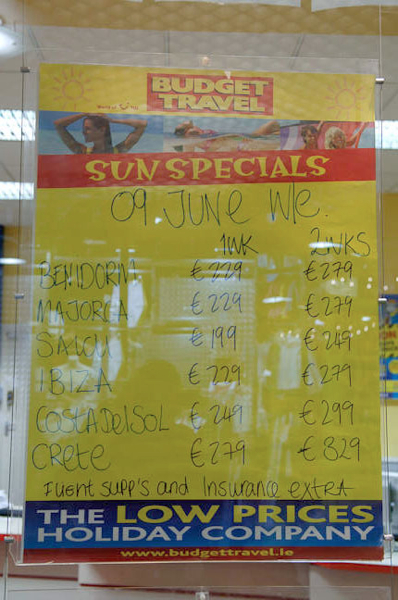 BUDGET
TRAVEL
SUN SPECIALS
09 JUNE W/e.
1WK 2WKS
BENIDORM €229 €279
MAJORCA €229 €279
SALOU €199 €249
IBIZA €229 €279
COSTA DEL SOL €249 €299
CRETE €279 €329
FLIGHT SUPP'S and Insurance EXTRA
THE LOW PRICES
HOLIDAY COMPANY
www.budgettravel.ie